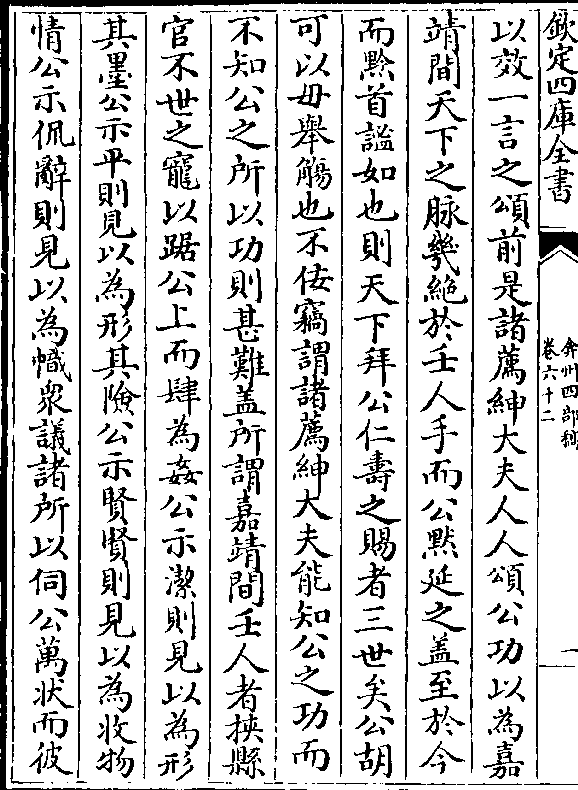 欽定四庫全書
弇州四部稿
卷六十二
一
以效一言之頌前是諸薦紳大夫人人頌公功以為嘉
靖間天下之脉幾絶於壬人手而公黙延之蓋至於今
而黔首謐如也則天下拜公仁壽之賜者三世矣公胡
可以毋舉觴也不佞竊謂諸薦紳大夫能知公之功而
不知公之所以功則甚難盖所謂嘉靖間壬人者挾縣
官不世之寵以踞公上而肆為姦公示潔則見以為形
其墨公示平則見以為形其險公示賢賢則見以為收物
情公示侃辭則見以為幟衆議諸所以伺公萬状而彼